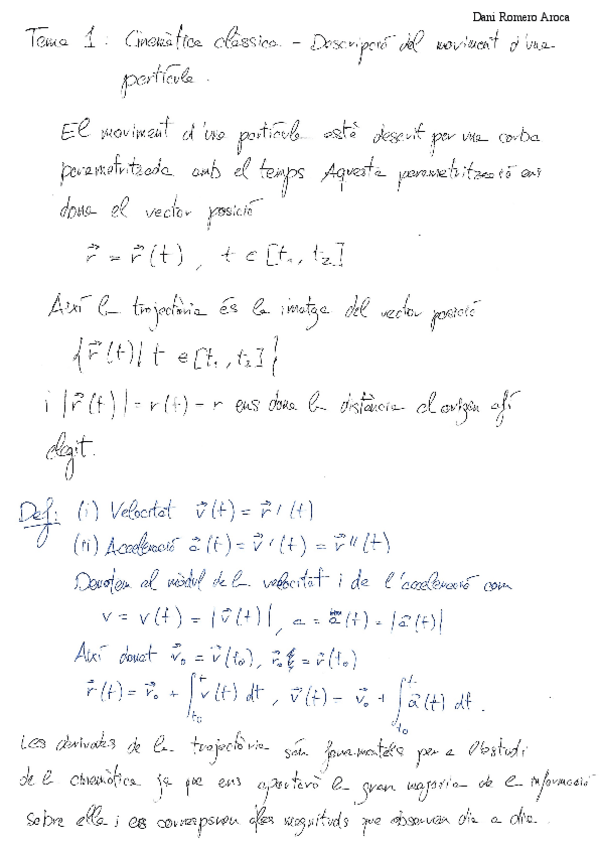 Dani Romero Aroca
Tema 1: Cinemàtica clàssica. - Descripció del moviment d'una
partícula.
El moviment d'una partícula està descrit per una corba
parametritzada amb el temps Aquesta parametrització ens
dona el vector posició
r⃗ = r⃗(t), t ∈ [t₁, t₂]
Així la trajectòria és la imatge del vector posició
{r⃗(t) | t ∈ [t₁, t₂]}
i |r⃗(t)| = r(t) = r ens dona la distància al origen afí
elegit.
Def: (i) Velocitat v⃗(t) = r⃗'(t)
(ii) Acceleració a⃗(t) = v⃗'(t) = r⃗''(t)
Denotem al mòdul de la velocitat i de l'acceleració com
v = v(t) = |v⃗(t)|, a = a(t) = |a⃗(t)|
Així donat v⃗₀ = v⃗(t₀), r⃗₀ = r⃗(t₀)
r⃗(t) = r⃗₀ + ∫_{t₀}^{t} v⃗(t) dt, v⃗(t) = v⃗₀ + ∫_{t₀}^{t} a⃗(t) dt.
Les derivades de la trajectòria són fonamentals per a l'estudi
de la cinemàtica ja que ens aportarà la gran majoria de la informació
sobre ella i es corresponen a les magnituds que observem dia a dia.